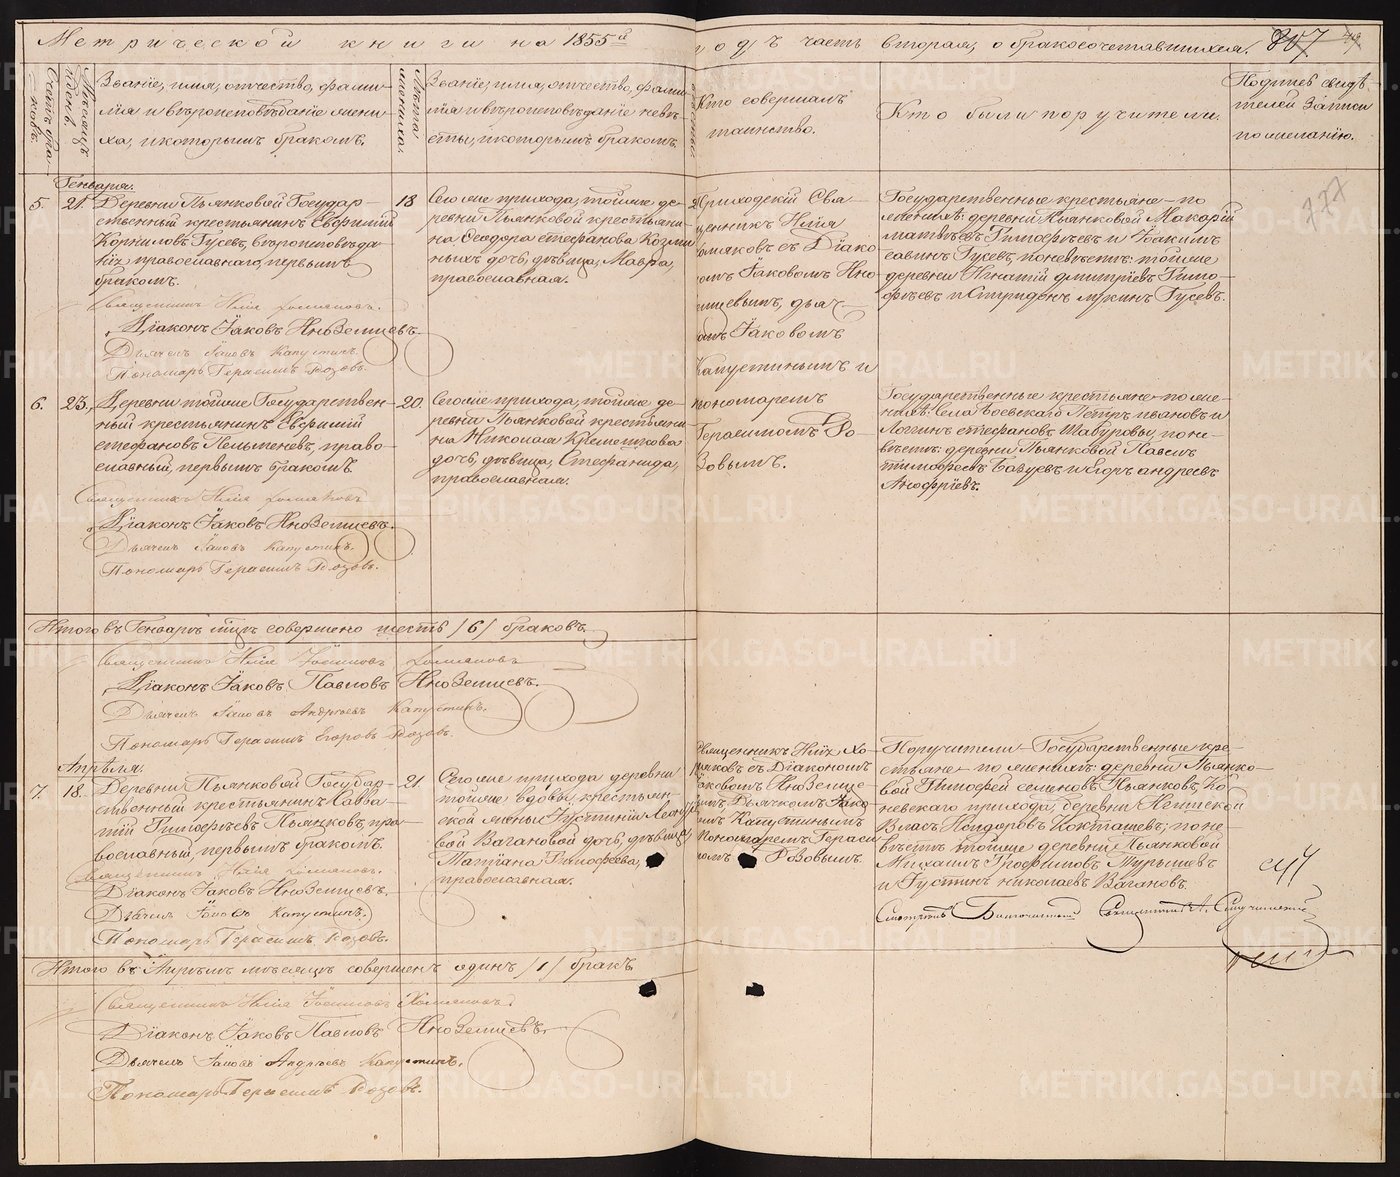 Метрической книги на 1855й
годъ часть вторая, о бракосочетавшихся.
807
Счетъ браковъ.
Мѣсяцъ и день.
Званіе, имя, отчество, фами-
лія и вѣроисповѣданіе жени-
ха, и которымъ бракомъ.
Лѣта жениха.
Званіе, имя, отчество, фами-
лія и вѣроисповѣданіе невѣ-
сты, и которымъ бракомъ.
Кто совершалъ
таинство.
Кто были поручители.
Подпись свидѣ-
телей записи
по желанію.
777
Генваря.
5.
21.
Деревни Пьянковой Государ-
ственный крестьянинъ Евфимій
Корниловъ Гусевъ, вѣроисповѣда-
нія православнаго, первымъ
бракомъ.
Священникъ Илія Холмяковъ.
Діаконъ Іаковъ Иноземцевъ.
Дьячекъ Іаковъ Капустинъ.
Пономарь Герасимъ Розовъ.
18
Сего же прихода, тойже де-
ревни Пьянковой крестьяни-
на Ѳеодора Стефанова Козми-
ныхъ дочь, дѣвица, Мавра,
православная.
Приходскій Свя-
щенникъ Илія
Холмяковъ съ Діако-
номъ Іаковомъ Ино-
земцевымъ, дьяч-
комъ Іаковомъ
Капустинымъ и
пономаремъ
Герасимомъ Ро-
зовымъ.
Государственные крестьяне по
женихѣ: деревни Пьянковой Макарій
Матвѣевъ Тимофѣевъ и Іоакимъ
Савинъ Гусевъ, по невѣстѣ: тойже
деревни Игнатій Дмитріевъ Тимо-
фѣевъ и Спиридонъ Лукинъ Гусевъ.
6.
23.
Деревни тойже Государствен-
ный крестьянинъ Евфимій
Стефановъ Пельменевъ, право-
славный, первымъ бракомъ
Священникъ Илія Холмяковъ
Діаконъ Іаковъ Иноземцевъ.
Дьячекъ Іаковъ Капустинъ.
Пономарь Герасимъ Розовъ.
20.
Сегоже прихода, тойже де-
ревни Пьянковой крестьяни-
на Николая Кремешкова
дочь, дѣвица, Стефанида,
православная.
Государственные крестьяне по же-
нихѣ: села Боевскаго Петръ Ивановъ и
Логгинъ Стефановъ Шабуровы, по не-
вѣстѣ: деревни Пьянковой Павелъ
Тимофеевъ Базуевъ и Егоръ Андреевъ
Анофріевъ.
Итого въ Генварѣ мцѣ совершено шесть /6/ браковъ.
Священникъ Илія Іосифовъ Холмяковъ
Діаконъ Іаковъ Павловъ Иноземцевъ.
Дьячекъ Іаковъ Андреевъ Капустинъ.
Пономарь Герасимъ Егоровъ Розовъ.
Апрѣля.
7.
18.
Деревни Пьянковой Государ-
ственный крестьянинъ Савва-
тій Тимофѣевъ Пьянковъ, пра-
вославный, первымъ бракомъ.
Священникъ Илія Холмяковъ.
Діаконъ Іаковъ Иноземцевъ.
Дьячекъ Іаковъ Капустинъ.
Пономарь Герасимъ Розовъ.
21.
Сегоже прихода деревни
тойже вдовы, крестьян-
ской жены Іустиніи
вой Вагановой дочь, дѣвица
Татіана Тимофеева,
православная.
Священникъ Илія Хо-
лмяковъ съ Діакономъ
Іаковомъ Иноземце-
вымъ, Дьячкомъ Іако-
вомъ Капустинымъ
Пономаремъ Гераси-
момъ Розовымъ.
Поручители Государственные кре-
стьяне по женихѣ: деревни Пьянко-
вой Тимофей Семеновъ Пьянковъ, Ко-
невскаго прихода, деревни
Власъ Никаноровъ Кокташевъ; по не-
вѣстѣ тойже деревни Пьянковой
Михаилъ Трофимовъ Мурышевъ
и Іустинъ Николаевъ Вагановъ.
Смотрѣлъ Благочинный Священникъ А.
Итого въ Апрѣлѣ мѣсяцѣ совершенъ одинъ /1/ бракъ.
Священникъ Илія Іосифовъ Холмяковъ.
Діаконъ Іаковъ Павловъ Иноземцевъ.
Дьячекъ Іаковъ Андреевъ Капустинъ.
Пономарь Герасимъ Розовъ.
METRIKI.GASO-URAL.RU